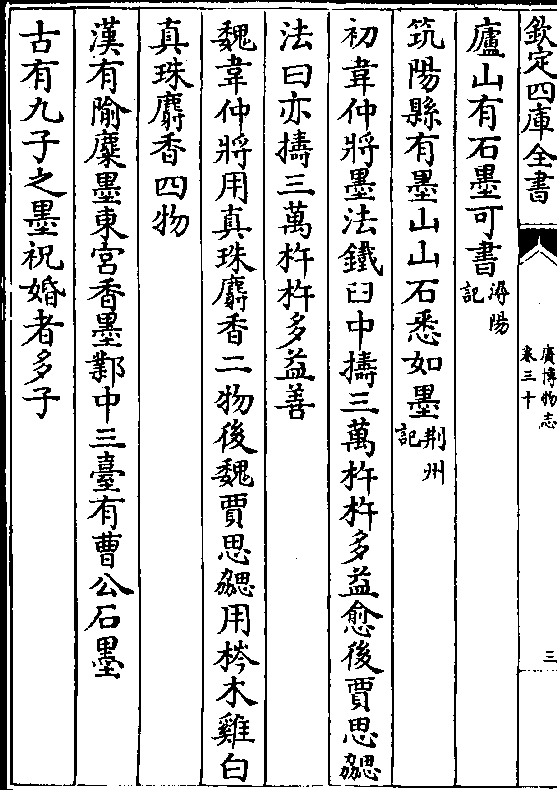 欽定四庫全書
廣博物志
卷三十
三
廬山有石墨可書潯陽記
筑陽縣有墨山山石悉如墨荆州記
初韋仲將墨法鐵臼中擣三萬杵杵多益愈後賈思勰
法曰亦擣三萬杵杵多益善
魏韋仲將用真珠麝香二物後魏賈思勰用梣木雞白
真珠麝香四物
漢有隃麋墨東宮香墨鄴中三臺有曹公石墨
古有九子之墨祝婚者多子